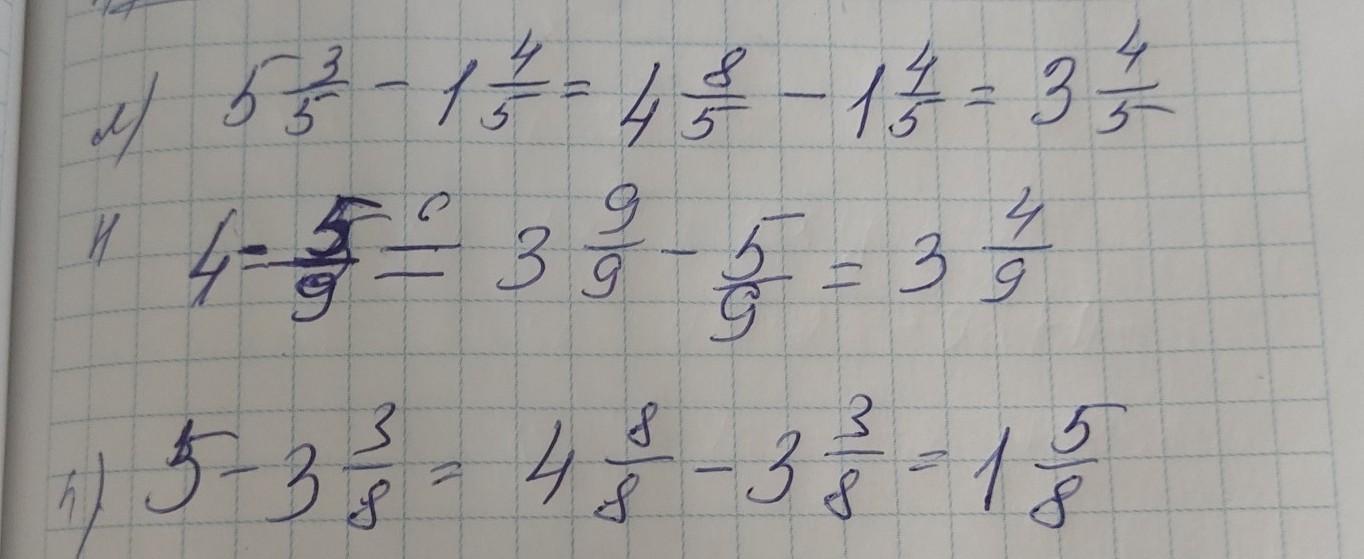 л) 5 3/5 - 1 4/5 = 4 8/5 - 1 4/5 = 3 4/5
4 - 5/9 = 3 9/9 - 5/9 = 3 4/9
п) 5 - 3 3/8 = 4 8/8 - 3 3/8 = 1 5/8